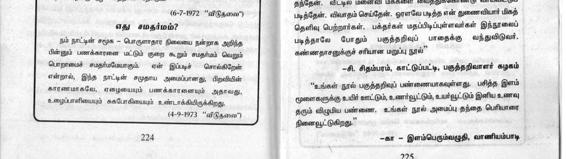 (6-7-1972 "விடுதலை")
எது சமதர்மம்?
நம் நாட்டின் சமூக – பொருளாதார நிலையை நன்றாக அறிந்த
பின்னும் பணக்காரனை மட்டும் குறை கூறும் சமதர்மம் வெறும்
பொறாமைச் சமதர்மமேயாகும். ஏன் இப்படிச் சொல்கிறேன்
என்றால், இந்த நாட்டின் சமுதாய அமைப்பானது, பிறவியின்
காரணமாகவே, ஏழையையும் பணக்காரனையும் அதாவது,
உழைப்பாளியையும் சுகபோகியையும் உண்டாக்கியிருக்கிறது.
(4-9-1973 "விடுதலை")
224
தந்தேன். வீட்டில் மனைவி மக்களை
படித்தேன். விவாதம் செய்தேன். ஓரளவே படித்த என் துணைவியார் மிகத்
தெளிவு பெற்றார்கள். பக்தர்கள் மதப்பிடிப்புள்ளவர்கள் இந்நூலைப்
படித்தாலே போதும் பகுத்தறிவுப் பாதைக்கு வந்துவிடுவர்.
கண்ணதாசனுக்குச் சரியான மறுப்பு நூல்"
–சி. சிதம்பரம், காட்டுப்பட்டி, பகுத்தறிவாளர் கழகம்
"உங்கள் நூல் பகுத்தறிவுப் பண்ணையாகவுள்ளது. பசித்த இளம்
மூளைகளுக்கு உயிர் ஊட்டும், உணர்வூட்டும், உயர்வூட்டும் இனிய உணவு
தரும் விழுமிய பண்ணை. உங்கள் நூல் அமைப்பு தந்தை பெரியாரை
நினைவூட்டுகிறது."
–கா – இளம்பெருவழுதி, வாணியம்பாடி
225